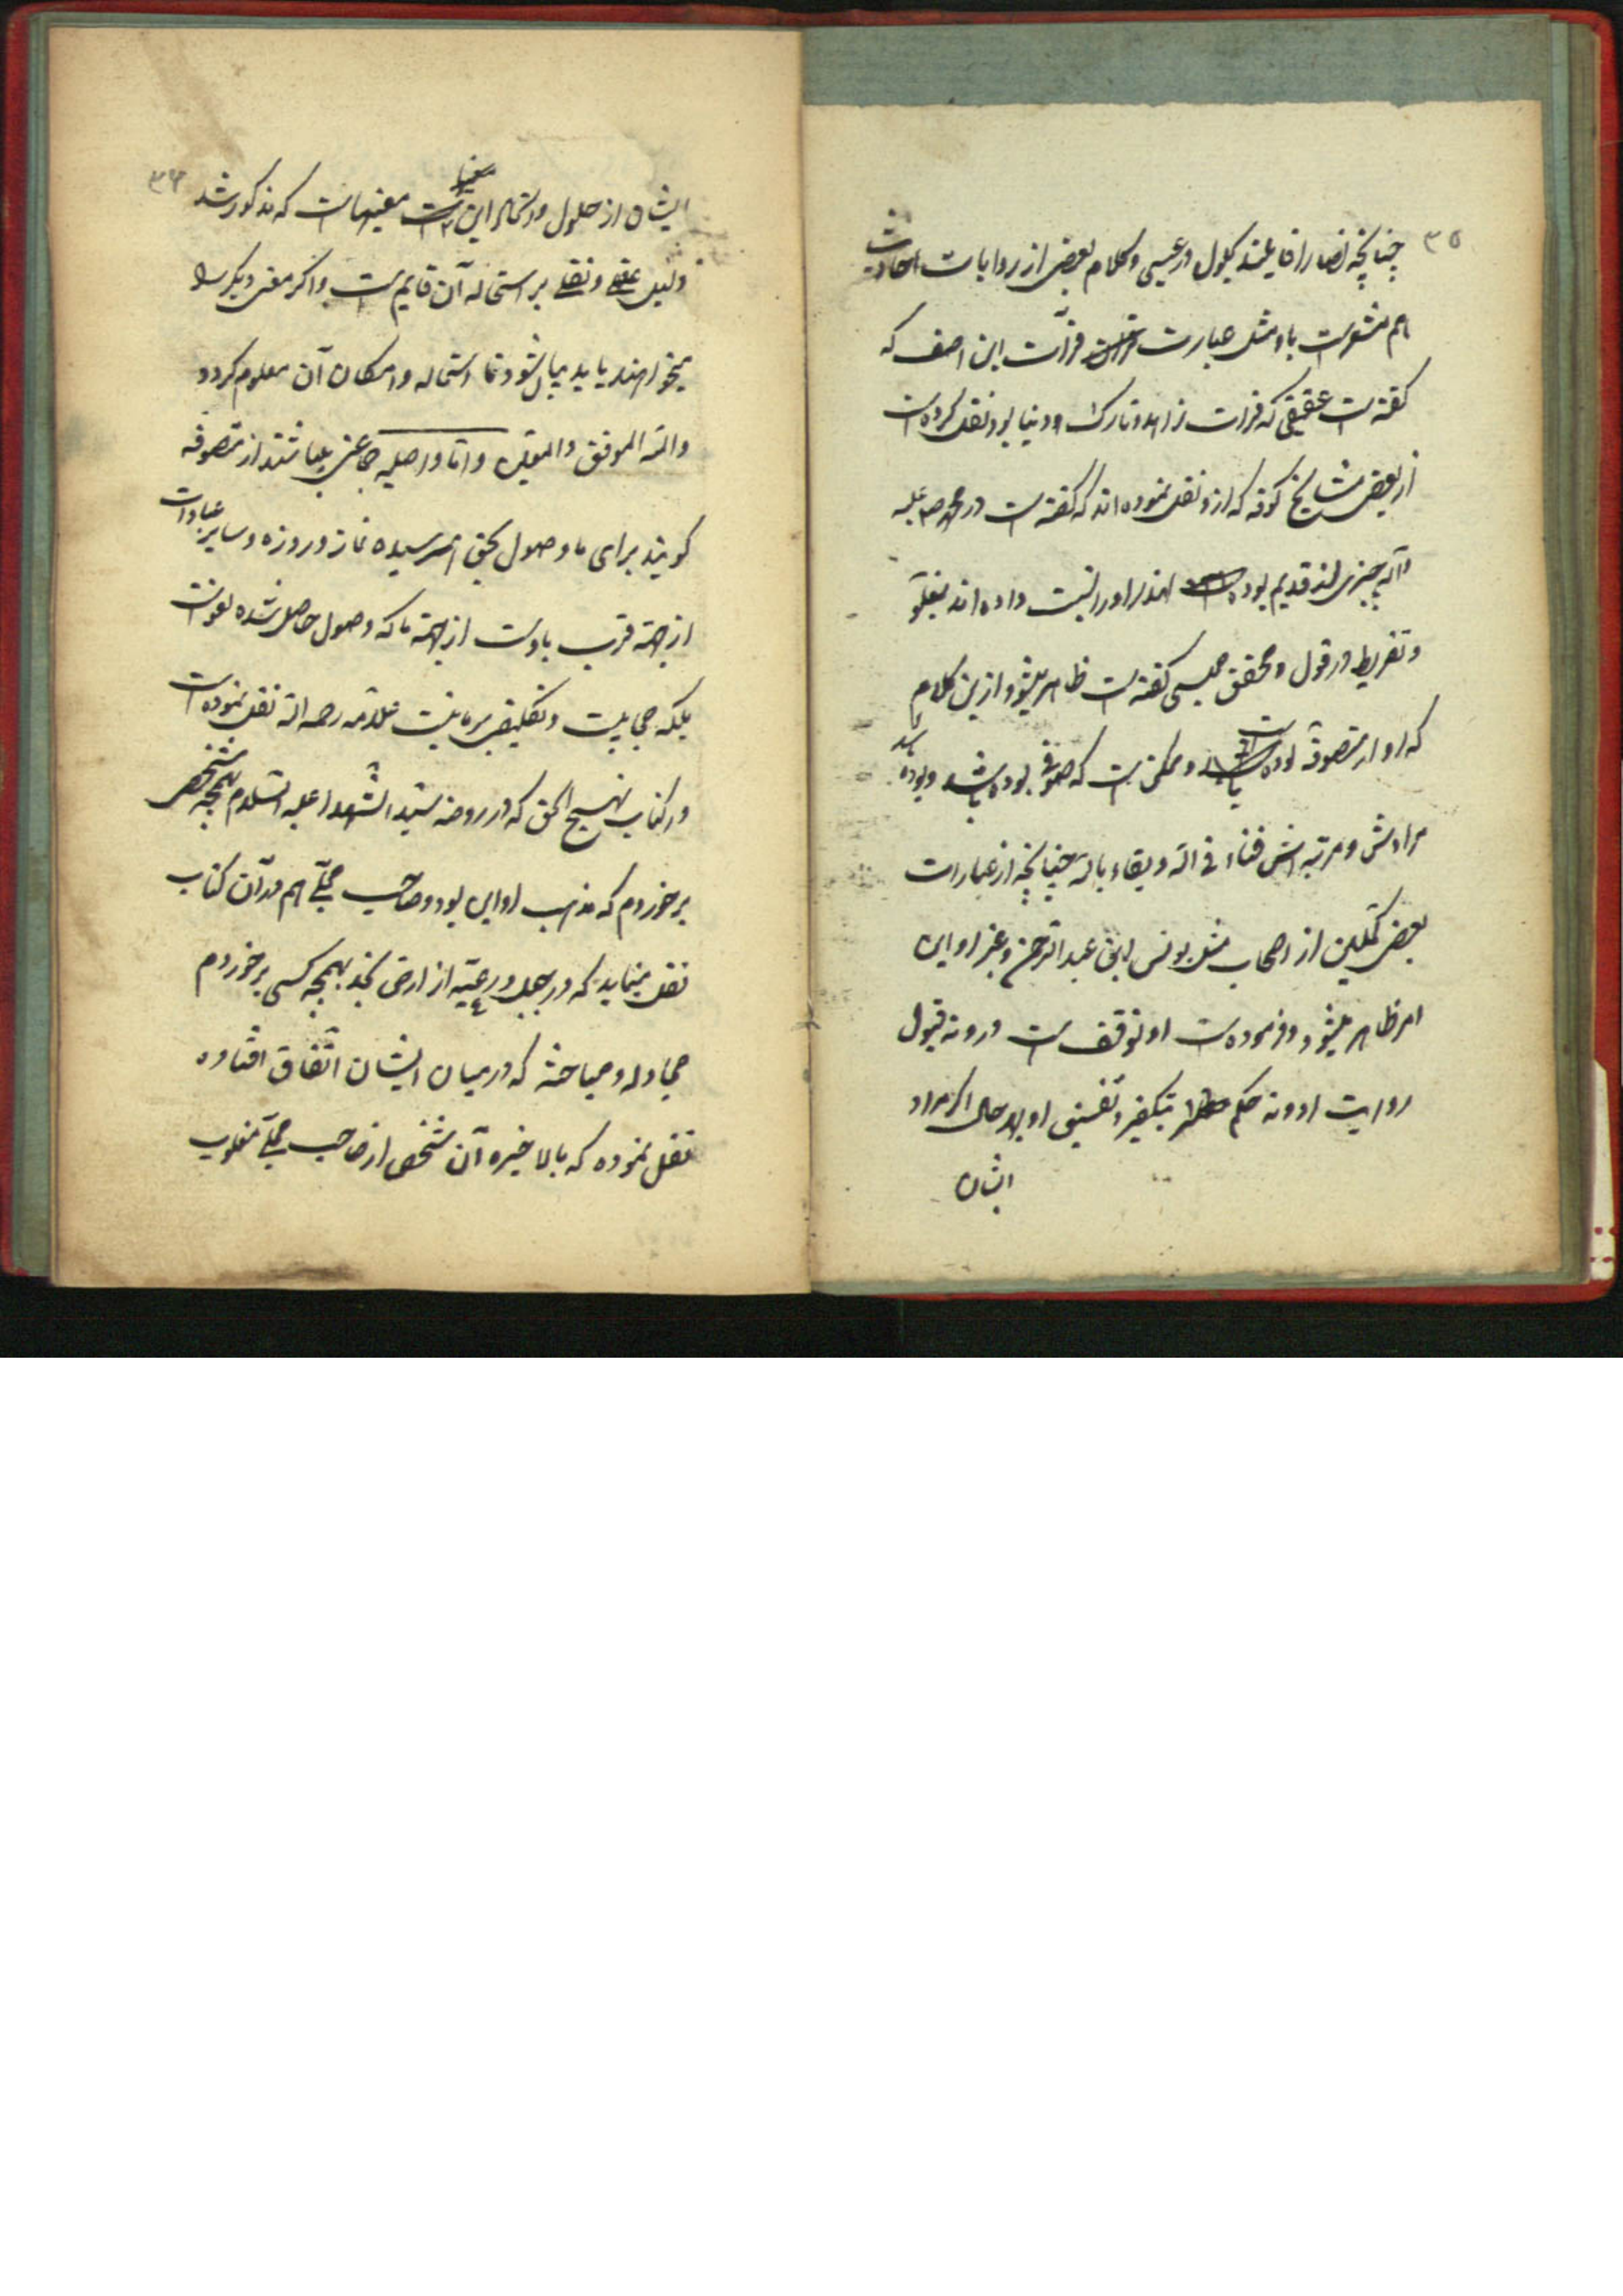 ۳۵
چنانچه نصارا قایلند بحلول در عیسی و کلام بعضی از روایات احادیث
هم مشعرست باو مثل عبارت فرات ابن احنف که
گفته است عقیقی که فرات زاهد و تارک دنیا بود نقل کرده است
از بعضی مشایخ کوفه که ازو نقل نموده‌اند که گفته است در محمد ص علیه
وآله چیزی از قدیم بوده است لهذا او را نسبت داده‌اند بغلو
و تفریط در قول و محقق مجلسی گفته است ظاهر میشود ازین کلام
که او از متصوفه بوده است و ممکن است که صوفی بوده باشد و بوده باشد
مرادش و مرتبه‌اش فناء فی الله و بقاء بالله چنانچه از عبارات
بعض متکلمین از اصحاب مثل یونس ابن عبدالرحمن و غیر او این
امر ظاهر میشود و فرموده است او توقف است در و نه قبول
روایت او و نه حکم بتکفیر و تفسیق او بهر حال اگر مراد
ایشان
۳۶
ایشان از حلول و اتحاد این معنیهاست که مذکور شد
دلیل عقلی و نقلی بر استحاله آن قایم است و اگر معنی دیگر را
میخواهند باید بیان شود تا استحاله و امکان آن معلوم گردد
والله الموفق والمعین و اما واصلیه جماعتی میباشند از متصوفه
گویند برای ما وصول بحق بهم رسیده نماز و روزه و سایر عبادات
از جهة قرب باوست از جهة ما که وصول حاصل شده لغو است
بلکه حجابیست و تکلیف بر ما نیست علامه رحمه الله نقل نموده است
در کتاب نهج الحق که در روضه سید الشهدا علیه السلام بهمچه شخصی
برخوردم که مذهب او این بود و صاحب مجلی هم در آن کتاب
نقل مینماید که در جبل و رعیة از ارض نجد بهمچه کسی برخوردم
مجادله و مباحثه که در میان ایشان اتفاق افتاده
نقل نموده که بالاخیره آن شخص از صاحب مجلی مغلوب